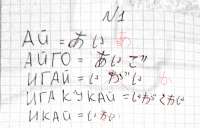 №1
АЙ = あい あ
АЙГО = あいご
ИГАЙ = いがい
ИГАКУКАЙ = いがくかい
ИКАЙ = いかい